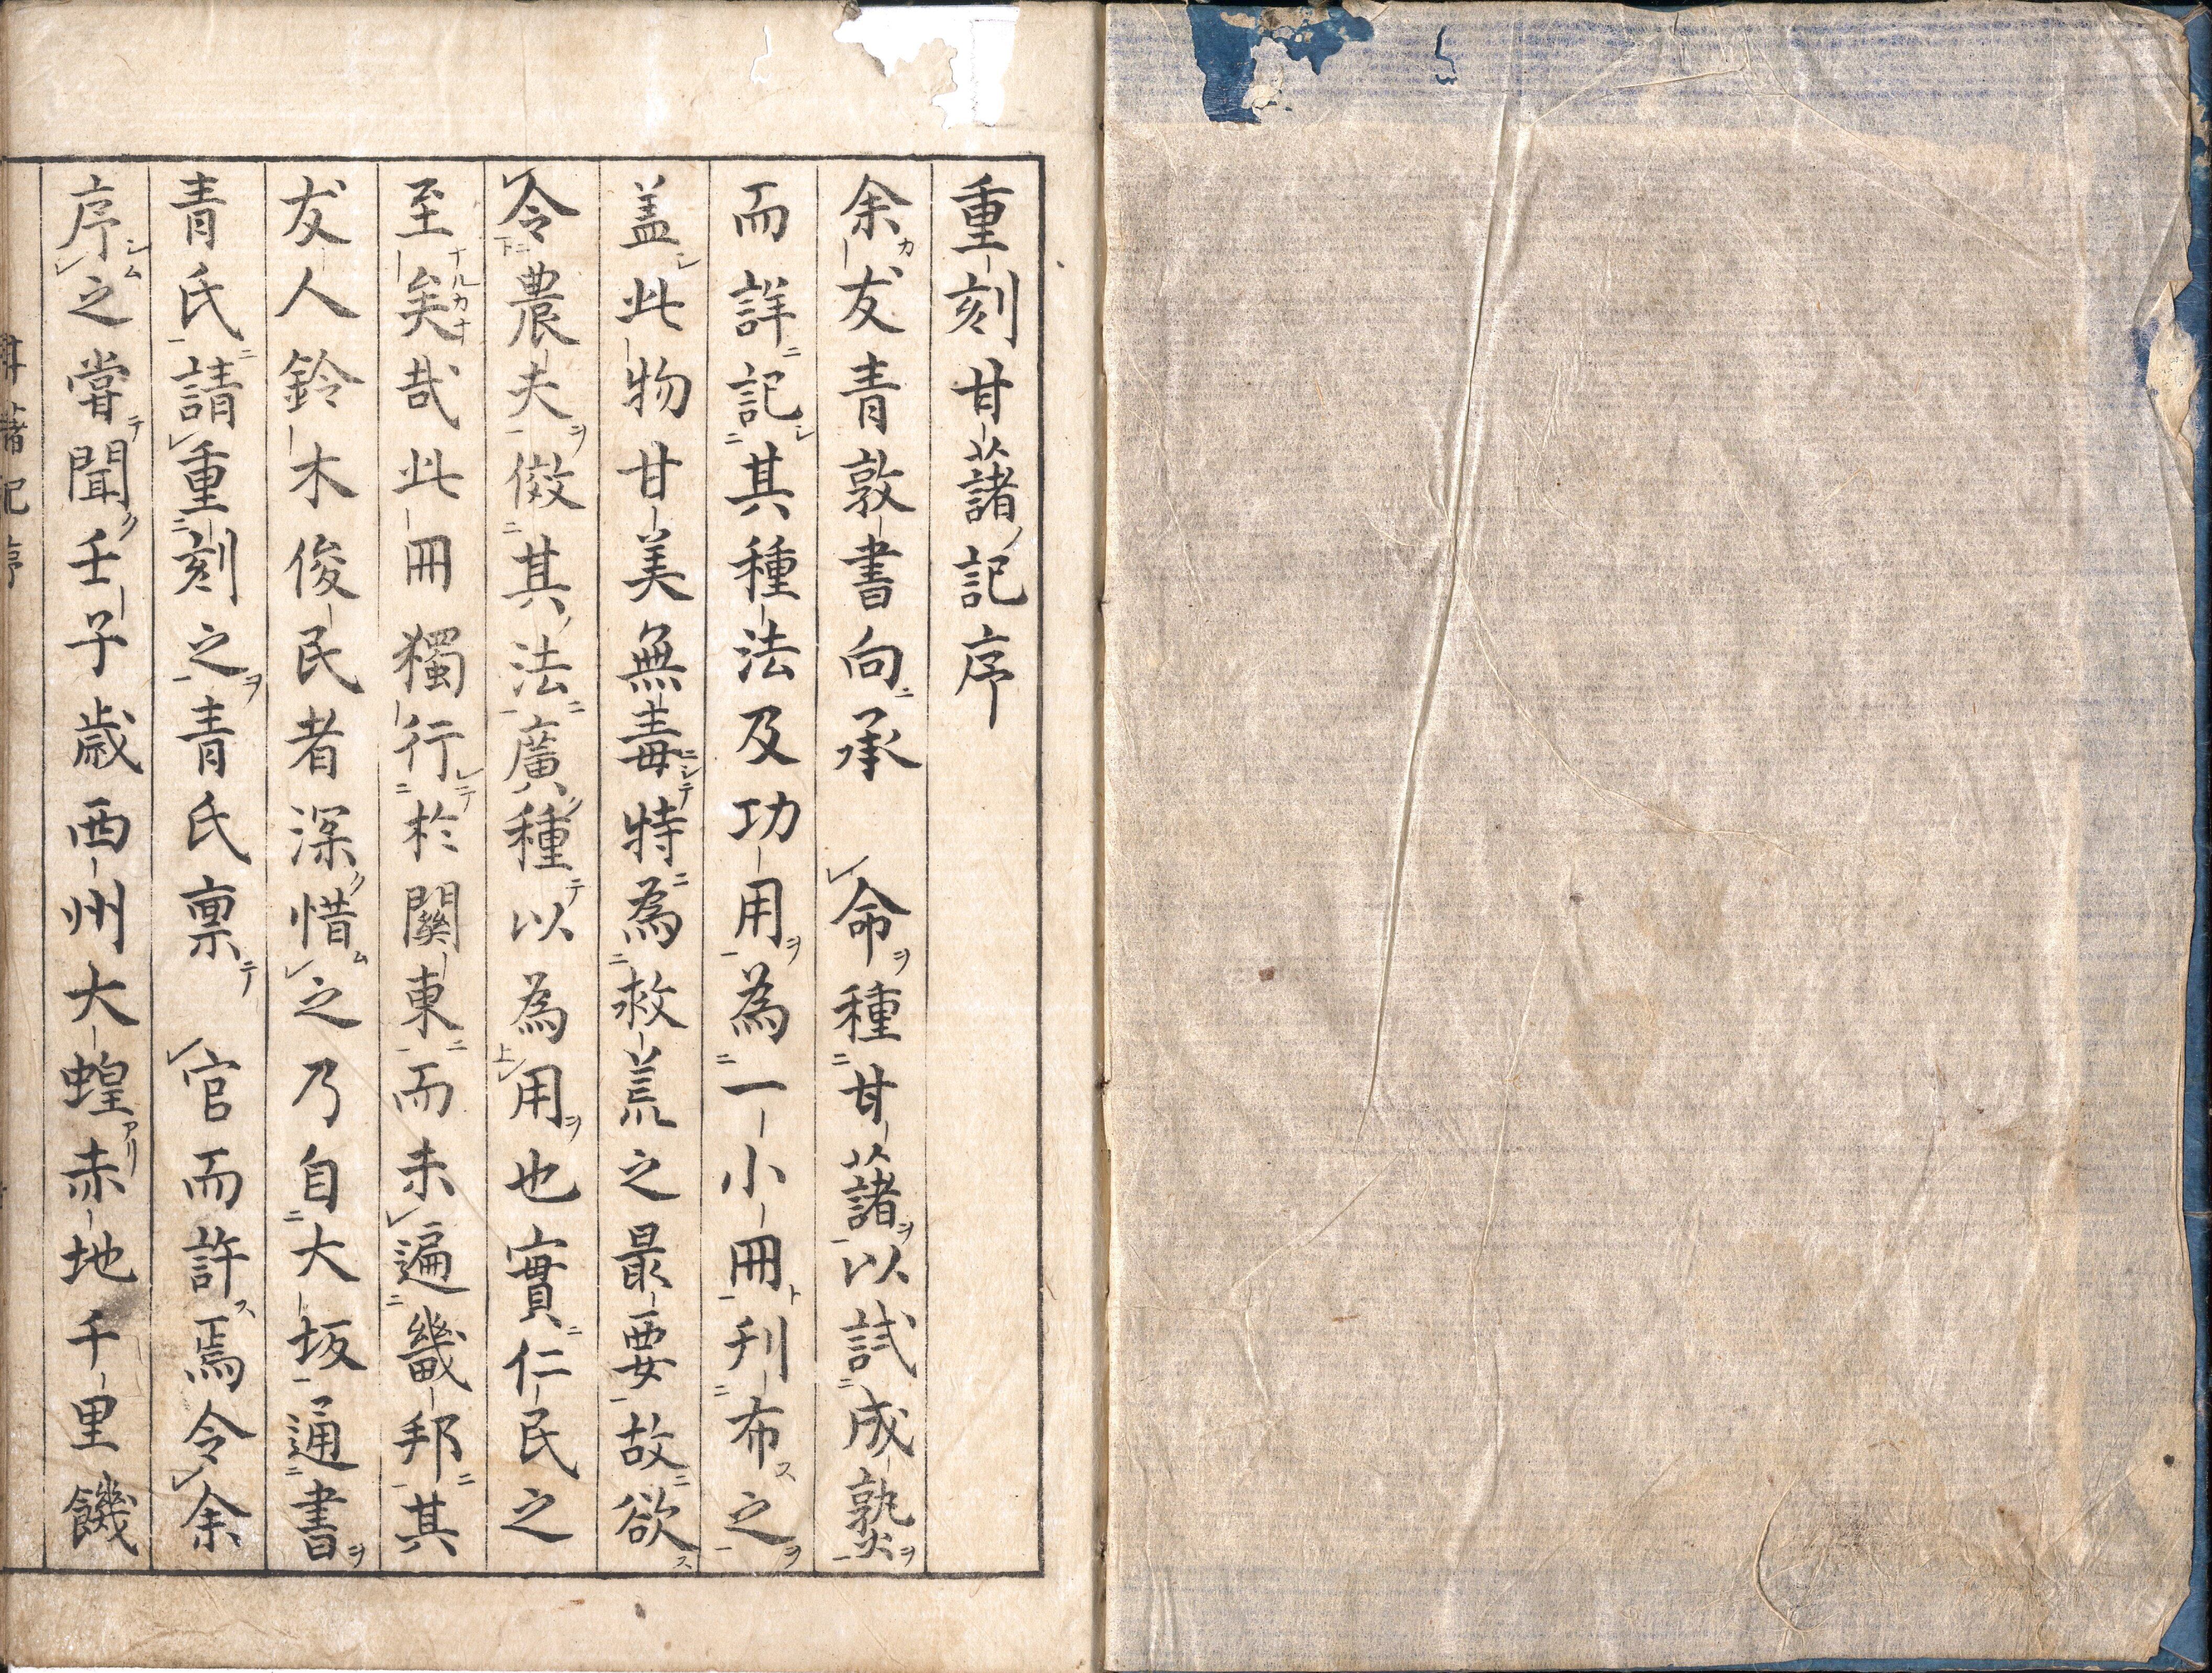 重刻甘藷記序
余友青敦書向承　命種甘藷以試成熟
而詳記其種法及功用為一小冊刊布之
盖此物甘美無毒特為救荒之最要故欲
令農夫傚其法廣種以為用也實仁民之
至矣哉此冊獨行於關東而未遍畿邦其
友人鈴木俊民者深惜之乃自大坂通書
青氏請重刻之青氏稟　官而許焉令余
序之嘗聞壬子歳西州大蝗赤地千里饑
藷記序